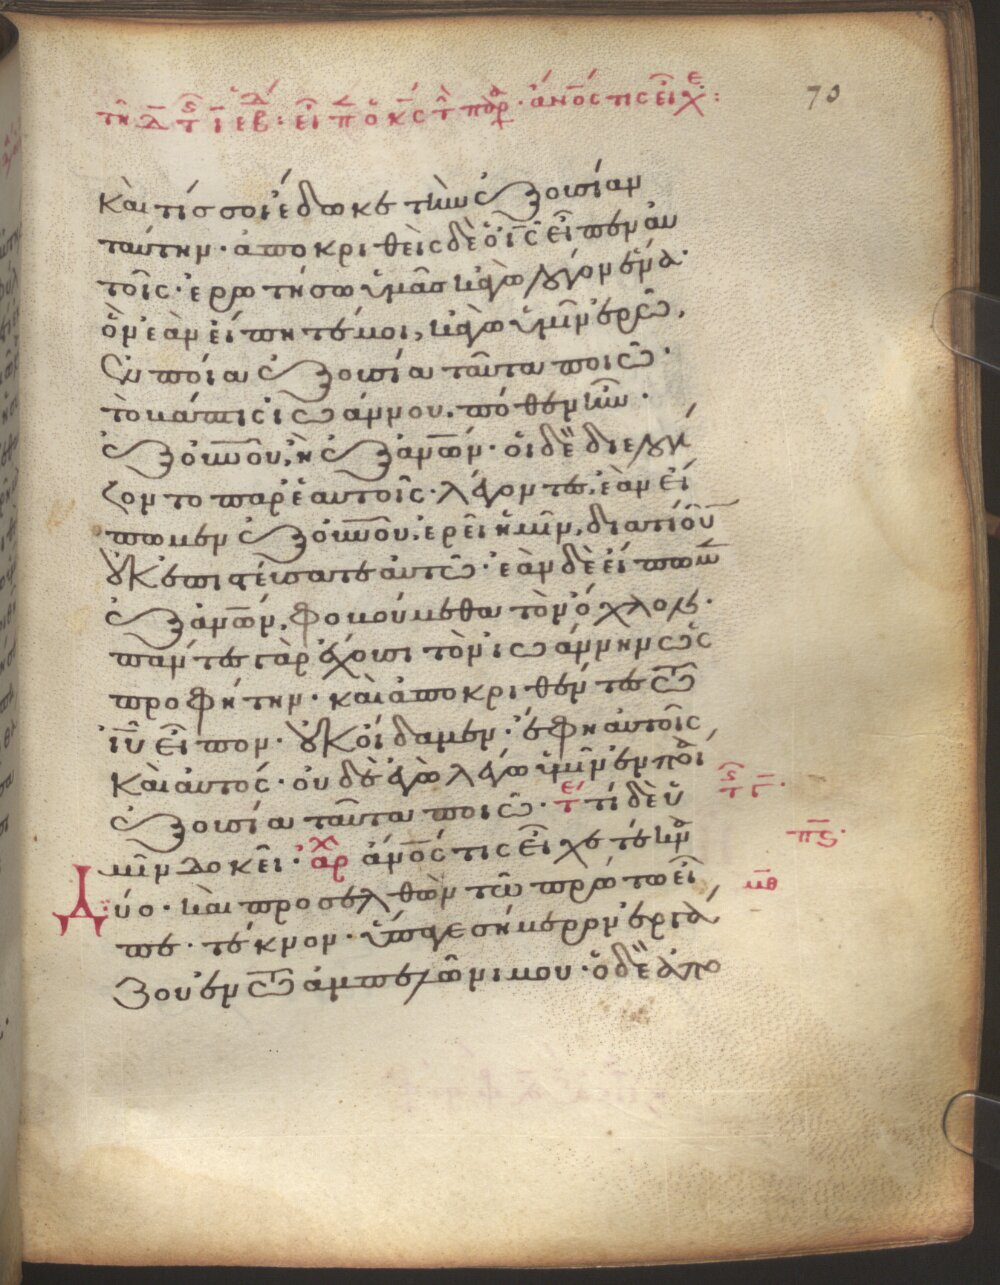 τῆ δ τ ι εβ · εἶπ ὁ κς τ παρ · ἄνος τις εἶχε :
70
καὶ τίς σοι ἔδωκε τὴν ἐξουσίαν
ταύτην · ἀποκριθεὶς δὲ ὁ ις εἶπεν αυ
τοῖς · ερωτήσω ὑμᾶς κἀγὼ λόγον ἕνα ·
ὃν ἐὰν εἴπητέ μοι, κἀγὼ ὑμῖν ἐρῶ,
ἐν ποία ἐξουσία ταῦτα ποιῶ ·
τὸ βάπτισμα ἰωάννου · πόθεν ἦν ·
ἐξ οὐνοῦ, ἢ ἐξ ἀνων · οἱ δὲ διελογί
ζοντο παρ ἑαυτοῖς · λέγοντες, ἐὰν εἴ
πωμεν ἐξ οὐνοῦ, ἐρεῖ ἡμῖν, διατί οὖν
οὐκ ἐπιστεύσατε αυτῶ · ἐὰν δὲ εἴπωμεν
ἐξ ἀνων, φοβούμεθα τὸν ὄχλον ·
πάντες γὰρ ἔχουσι τὸν ἰωάννην ὡς
προφήτην · καὶ ἀποκριθέντες τῶ
ιυ εἶπον · οὐκ οἴδαμεν · ἔφη αυτοῖς
καὶ αυτός · ουδὲ ἐγὼ λέγω ὑμῖν ἐν ποία
ἐξουσία ταῦτα ποιῶ · τε τί δὲ ὑ
μῖν δοκεῖ · αρχ ἄνος τις εἶχε τέκνα
δύο · καὶ προσελθὼν τῶ πρώτω εἶ
πε · τέκνον · ὕπαγε σήμερον ἐργά
ζου ἐν τῶ ἀμπελῶνι μου · ὁ δὲ ἀπο